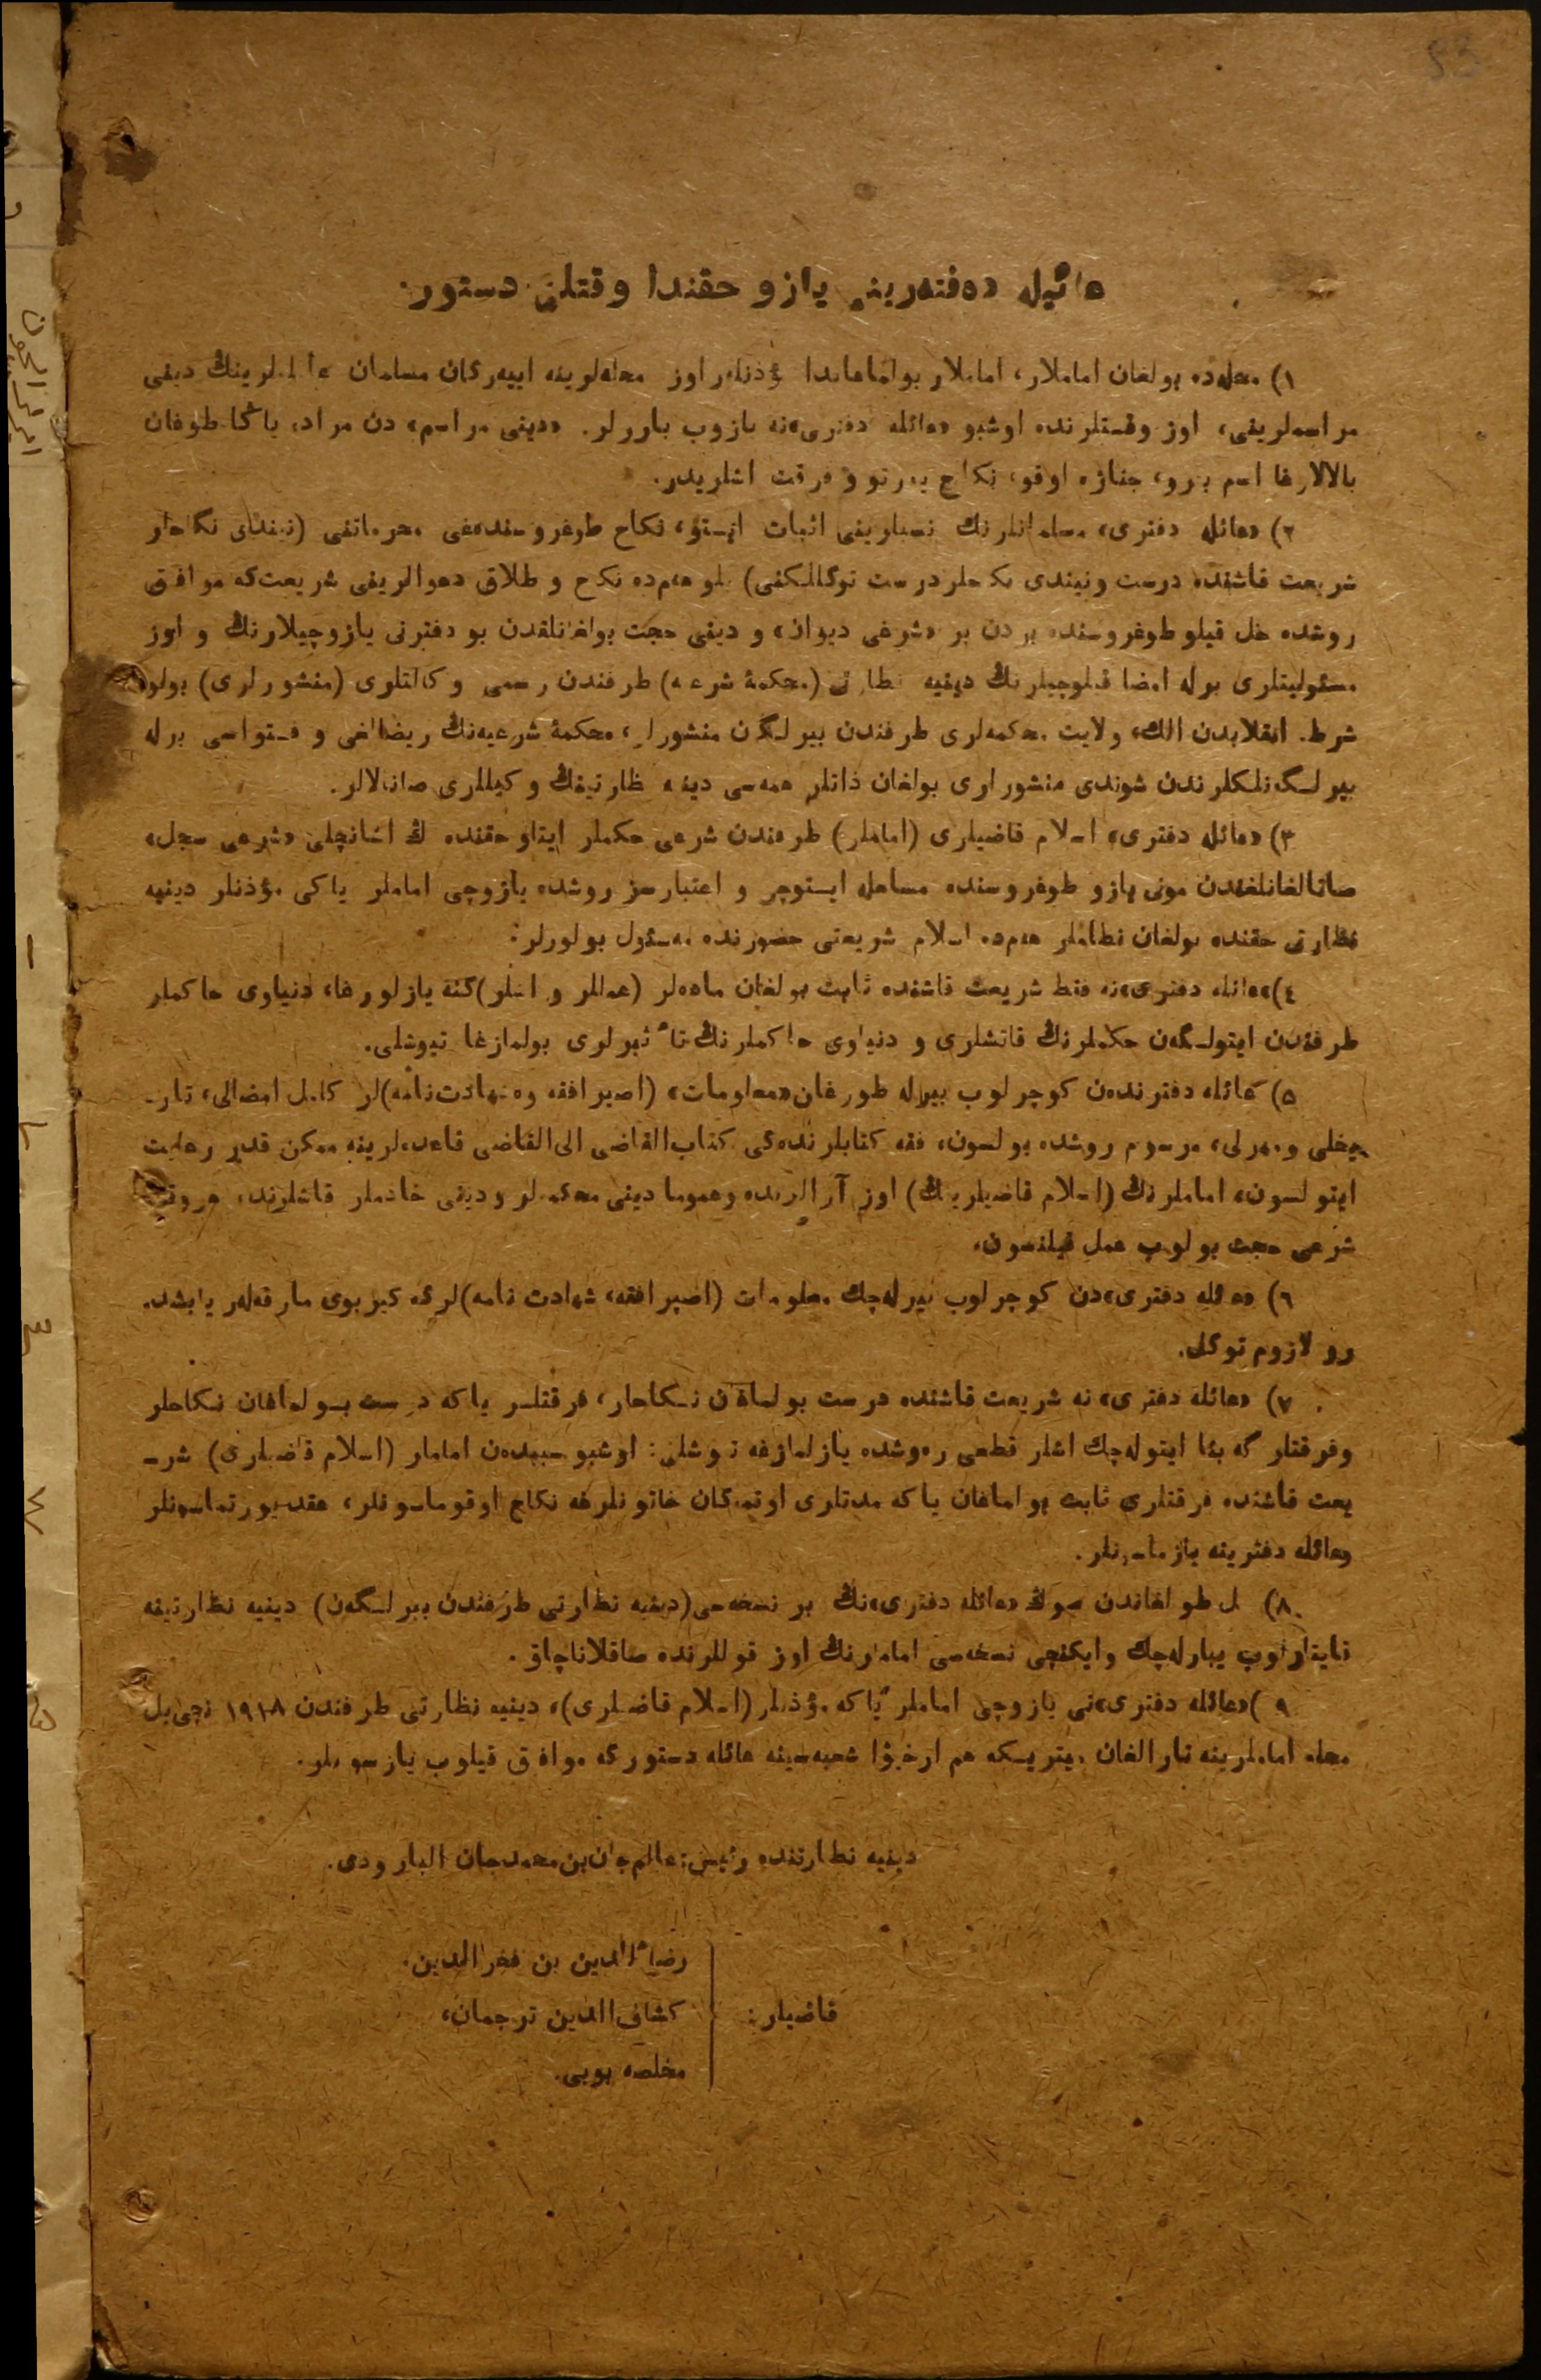 53
عائیله دەفتەرینی یازو حقندا وقتلی دستور.
١) محلەدە بولغان اماملار، اماملار بولماغاندا مؤذنلەر اوز محلەلرینە اییەرگان مسلمان عائلەلرینڭ دینی
مراسملرینی، اوز وقتلرندە اوشبو «عائلە دفتری»نە یازوب باررلر. «دینی مراسم» دن مراد، یاڭا طوغان
بالالارغا اسم بیرو، جنازە اوقو، نکاح یورتو و فرقت اشلریدر.
٢) «عائلە دفتری» مسلمانلرنڭ نسبلرینی اثبات ایستو، نکاح طوغروسندەغی محرماتنی (نیندای نکاحلر
شریعت قاشندە درست و نیندی نکاحلر درست توگللکنی) بلو هەمدە نکاح و طلاق دعوالرینی شریعت‌کە موافق
روشدە حل قیلو طوغروسندە بردن بر «شرعی دیوان» و دینی حجت بولغانلقدن بو دفترنی یازوچیلارنڭ و اوز
مسئولیتلری برلە امضا قیلوچیلرنڭ دینیە نظارتی (محکمۀ شرعیە) طرفندن رسمی وکالتلری (منشورلری) بولو
شرط. انقلابدن الك، ولایت محکمەلری طرفندن بیرلگەن منشورلر، محکمۀ شرعیەنڭ ریضالغی و فتواسی برلە
بیرلگەنلکلرندن شوندی منشورلری بولغان ذاتلر همەسی دینیە نظارتینڭ وکیللری صانالالر.
٣) «عائلە دفتری» اسلام قاضیلری (اماملر) طرفندن شرعی حکملر ایتلو حقندە ڭ اشانچلی «شرعی سجل»
صانالغانلغندن مونی یازو طوغروسندە مساهلە ایستوچی و اعتبارسز روشدە یازوچی اماملر یاکی مؤذنلر دینیە
نظارتی حقندە بولغان نظاملر هەمدە اسلام شریعتی حضورندە مەسئول بولورلر.
٤) «عائلە دفتری»نە فقط شریعت قاشندە ثابت بولغان مادەلر (عمللر و اشلر) گنە یازلورغا، دنیاوی حاکملر
طرفندن ایتولگەن حکملرنڭ قاتشلری و دنیاوی حاکملرنڭ تأثیرلری بولمازغا تیوشلی.
٥) عائلە دفترندەن کوچرلوب بیرلە طورغان «معلومات» (اصپرافقە وە شهادت‌نامە)لر کامل امضالی، تار-
یخلی و مهرلی، مرسوم روشدە بولسون، فقە کتابلرندەگی کتاب‌القاضی الی‌القاضی قاعدەلرینە ممکن قدر رعایت
ایتولسون، اماملرنڭ (اسلام قاضیلرینڭ) اوز آرالرندە وعموما دینی محکمەلر و دینی خادملر قاشلرندە، هروقت
شرعی حجت بولوب عمل قیلنسون.
٦) «عائلە دفتری»دن کوچرلوب بیرلەچك معلومات (اصپرافقە، شهادت نامە)لرگە کیربوی مارقەلەر یابشد-
رو لازوم توگل.
٧) «عائلە دفتری» نە شریعت قاشندە درست بولماغان نکاحلر، فرقتلر یاکە درست بولماغان نکاحلر
وفرقتلر گە بنا ایتولەچك اشلر قطعی رەوشدە یازلمازغە تیوشلی: اوشبو سببدەن اماملر (اسلام قاضیلری) شر-
یعت قاشندە فرقتلری ثابت بولماغان یاکە مدتلری اوتمەگان خاتونلرغە نکاح اوقوماسونلر، عقد یورتماسونلر
وعائلە دفترینە یازماسونلر.
٨) یل طولغاندن صوڭ «عائلە دفتری»نڭ بر نسخەسی (دینیە نظارتی طرفندن بیرلگەن) دینیە نظارتینە
قایتارلوب یبارلەچك وایکنچی نسخەسی اماملرنڭ اوز قوللرندە صاقلاناچاق.
٩) «عائلە دفتری»نی یازوچی اماملر یاکە مؤذنلر (اسلام قاضیلری)، دینیە نظارتی طرفندن ١٩١٨ نچی یل
محلە اماملرینە تارالغان میتریکە هم ارخیوا شعبەسینە عائلە دستورگە موافق قیلوب یازسونلر.
دینیە نظارتندە رئیس: عالم‌جان‌بن‌محمدجان البارودی.
قاضیلر:
رضاءالدین بن فخرالدین.
کشاف‌الدین ترجمان،
مخلصە بوبی.